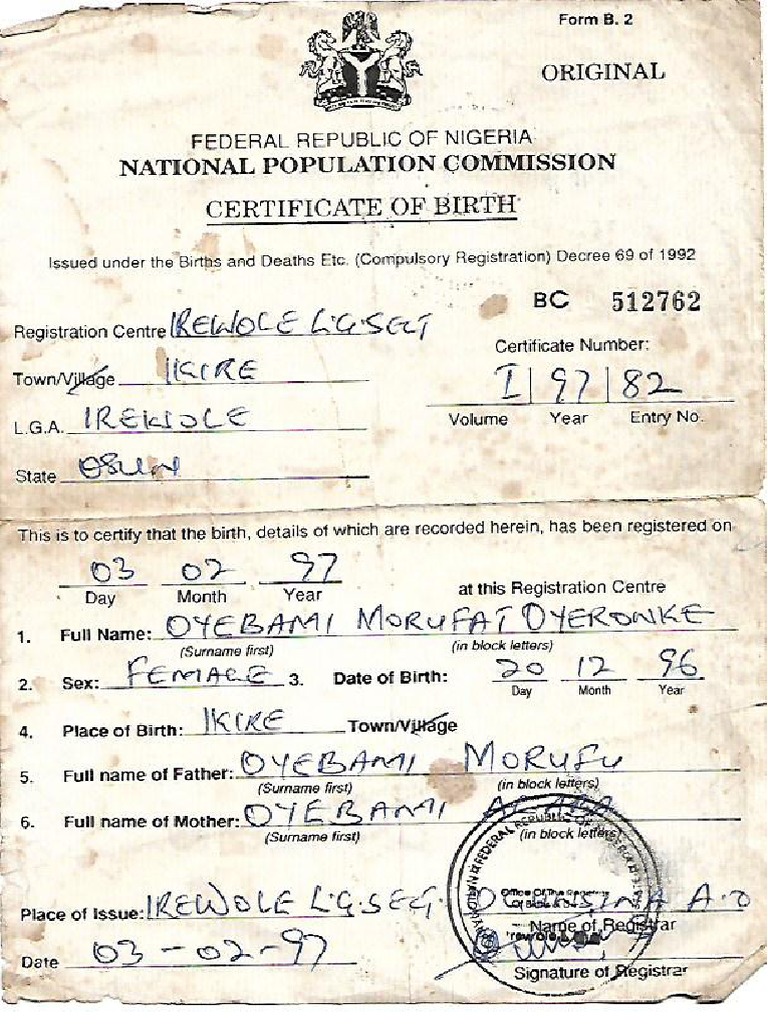 Form B. 2
ORIGINAL
FEDERAL REPUBLIC OF NIGERIA
NATIONAL POPULATION COMMISSION
CERTIFICATE OF BIRTH
Issued under the Births and Deaths Etc. (Compulsory Registration) Decree 69 of 1992
BC 512762
Registration Centre IREWOLE L.G. SECT
Certificate Number:
Town/Village IKIRE
I | 97 | 82
L.G.A. IREWOLE
Volume Year Entry No.
State OSUN
This is to certify that the birth, details of which are recorded herein, has been registered on
03 02 97
Day Month Year at this Registration Centre
1. Full Name: OYEBAMI MORUFAT OYERONKE
(Surname first) (in block letters)
2. Sex: FEMALE 3. Date of Birth: 20 12 96
Day Month Year
4. Place of Birth: IKIRE Town/Village
5. Full name of Father: OYEBAMI MORUFU
(Surname first) (in block letters)
6. Full name of Mother: OYEBAMI
(Surname first) (in block letters)
Place of Issue: IREWOLE L.G. SECT. A.O
Name of Registrar
Date 03-02-97
Signature of Registrar